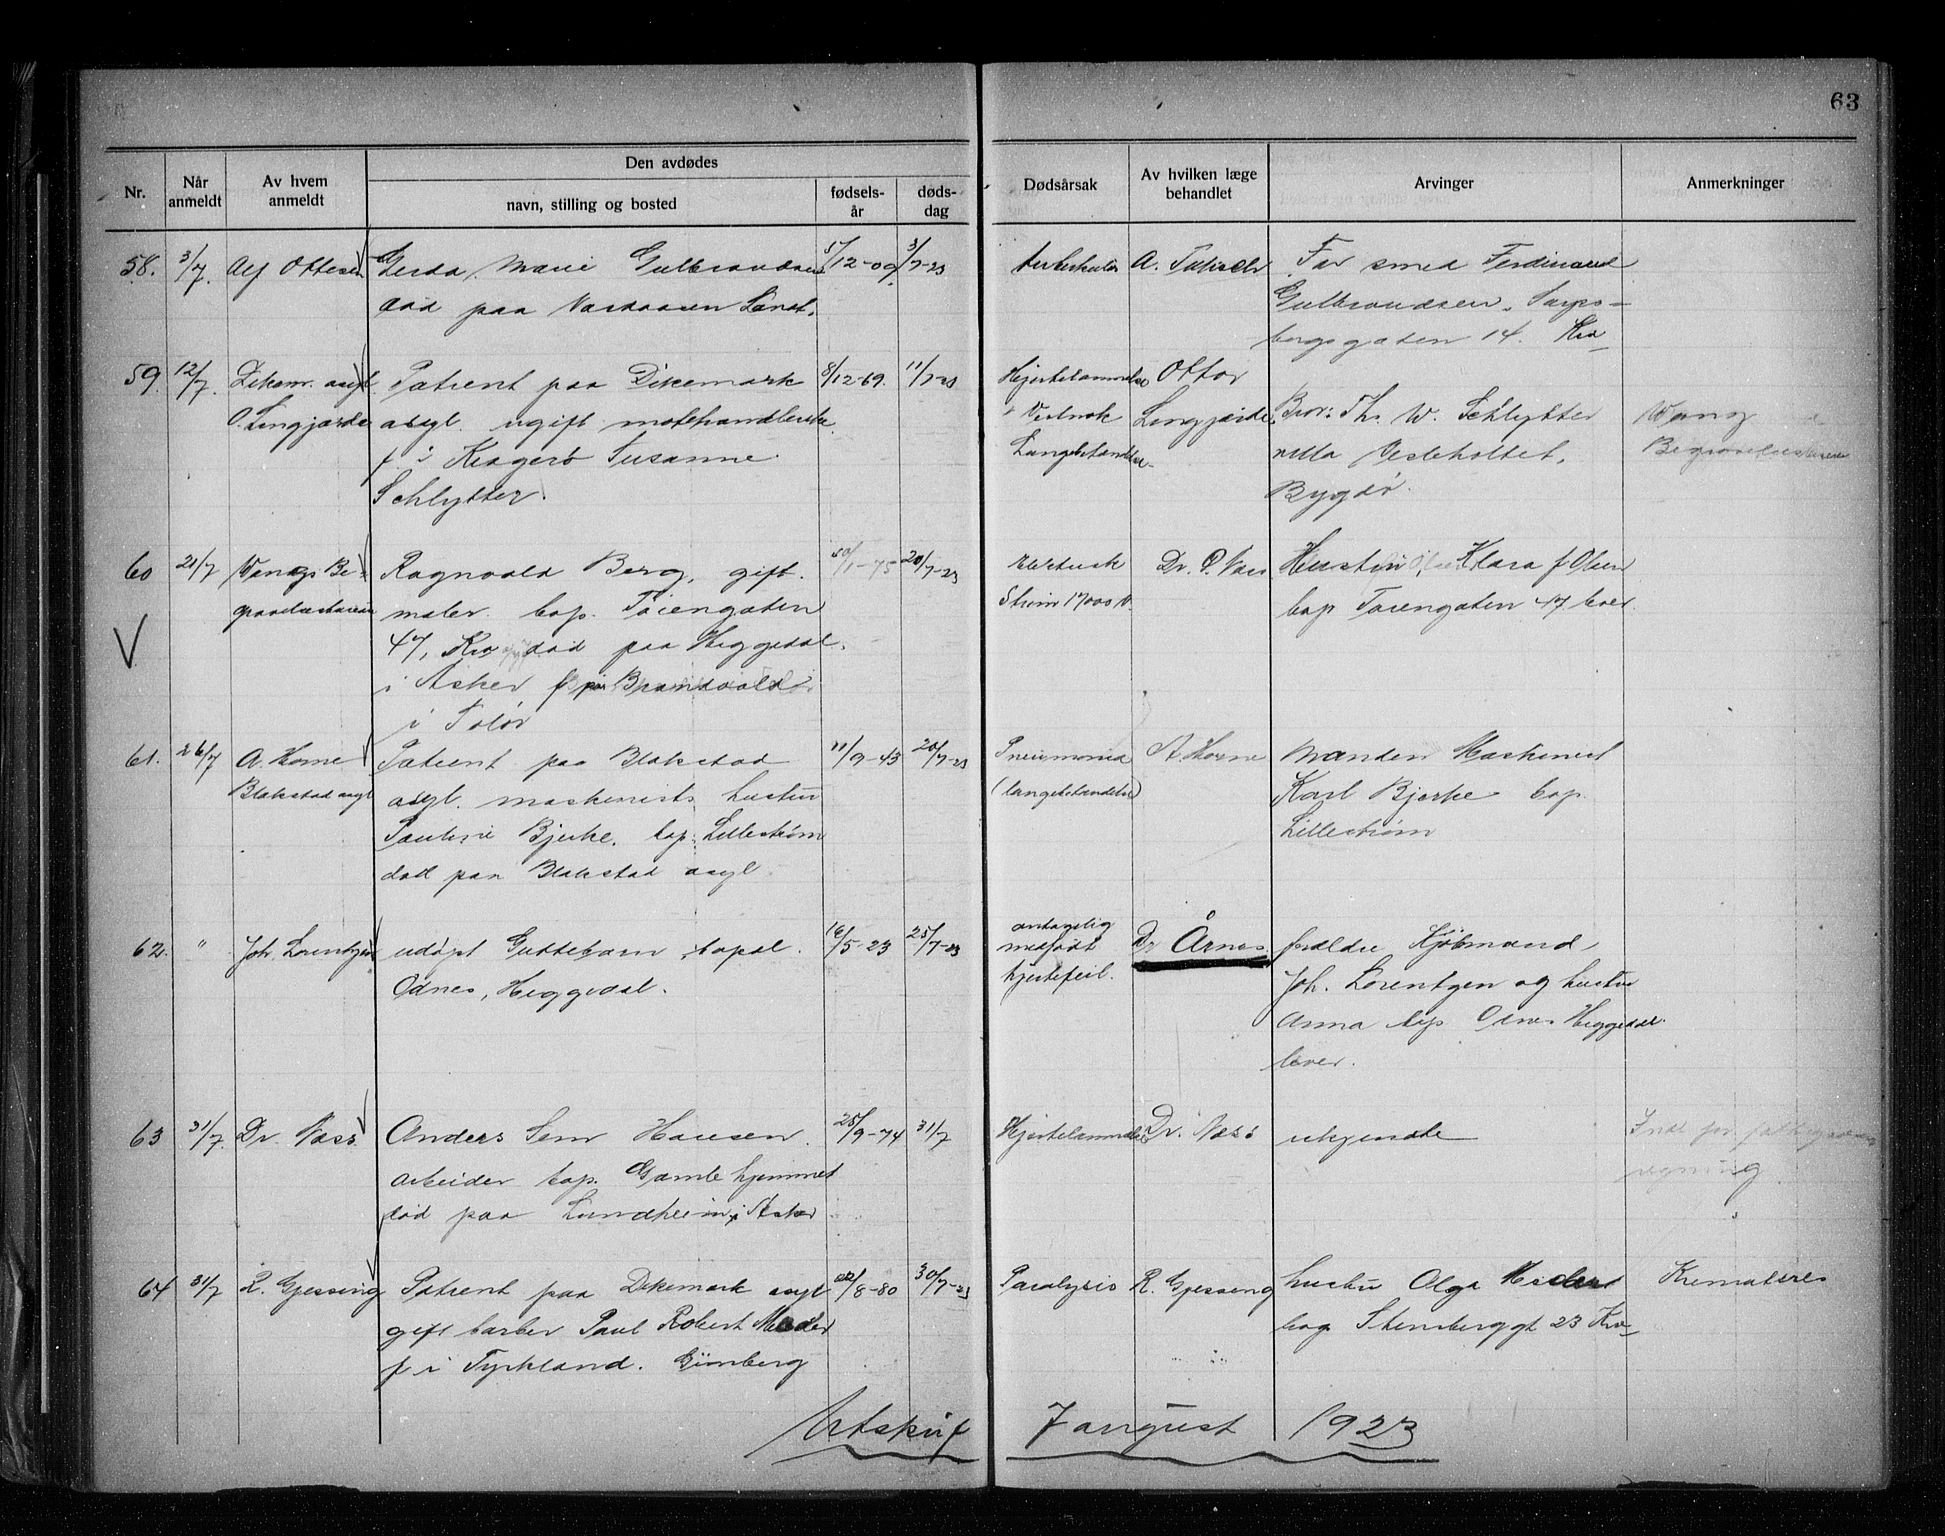 63
Nr.
Når anmeldt
Av hvem anmeldt
Den avdødes
navn, stilling og bosted
fødsels-år
døds-dag
Dødsårsak
Av hvilken læge behandlet
Arvinger
Anmerkninger
58. 3/7. Alf Ottesen Gerda Marie Gulbrandsen 5/12-09. 3/7-23 tuberkulos A. Far smed Ferdinand
død paa Vardaasen Sanat. Gulbrandsen, Sarps-
borggaten 14. Kra
59. 12/7. Dikem. asyl Patient paa Dikemark 8/12-69. 11/7-23 Hjertelammelse Ottar
O. Lingjærde asyl. ugift motehandlerske Lingjærde Bror: Th. W. Schlytter Wang
f i Kragerø Susanne Lungebetændelse villa Vesleholtet, Begravelsesbureau
Schlytter. Bygdø.
60 21/7 Wangs Be- Ragnvald Berg, gift. /1-75 20/7-23 elektrisk Dr. O. Næss Hustru Klara f Olsen
gravelsesbureau maler. bop. Tøiengaten Strøm 17000 V. bop Tøiengaten 47 lever
47, Kra død paa Heggedal.
V
i Asker f paa Brandvold
i Solør
61. 26/7 A. Horne Patient paa Blakstad 11/9-43 20/7-23 Pneumonia A. Horne Manden Maskinist
Blakstad asyl asyl. maskinists hustru (lungebetændelse) Karl Bjerke bop.
Pauline Bjerke. bop. Lillestrøm Lillestrøm
død paa Blakstad asyl
62. " Joh. Lorentzen udøpt Guttebarn, bopæl. 16/5-23 25/7-23 antagelig medfødt hjertefeil. Dr Årnes forældre Kjøbmand
Odnes, Heggedal. Joh. Lorentzen og hustru
Anna bop Odnes Heggedal.
lever.
63 31/7. Dr. Næss Anders Sem Hansen. 25/9-74 31/7 Hjertelammelse Dr. Næss ukjendte
arbeider bop. Gamlehjemmet regning
død paa Lundheim i Asker
64 31/7 R. Gjessing Patient paa Dikemark asyl 22/8-80 30/7-23 Paralysis R. Gjessing hustru Olga Kremateres
gift barber Paul Robert bop Stensberggt 23 Kra
f i Tyskland.
Utskrift 7 august 1923